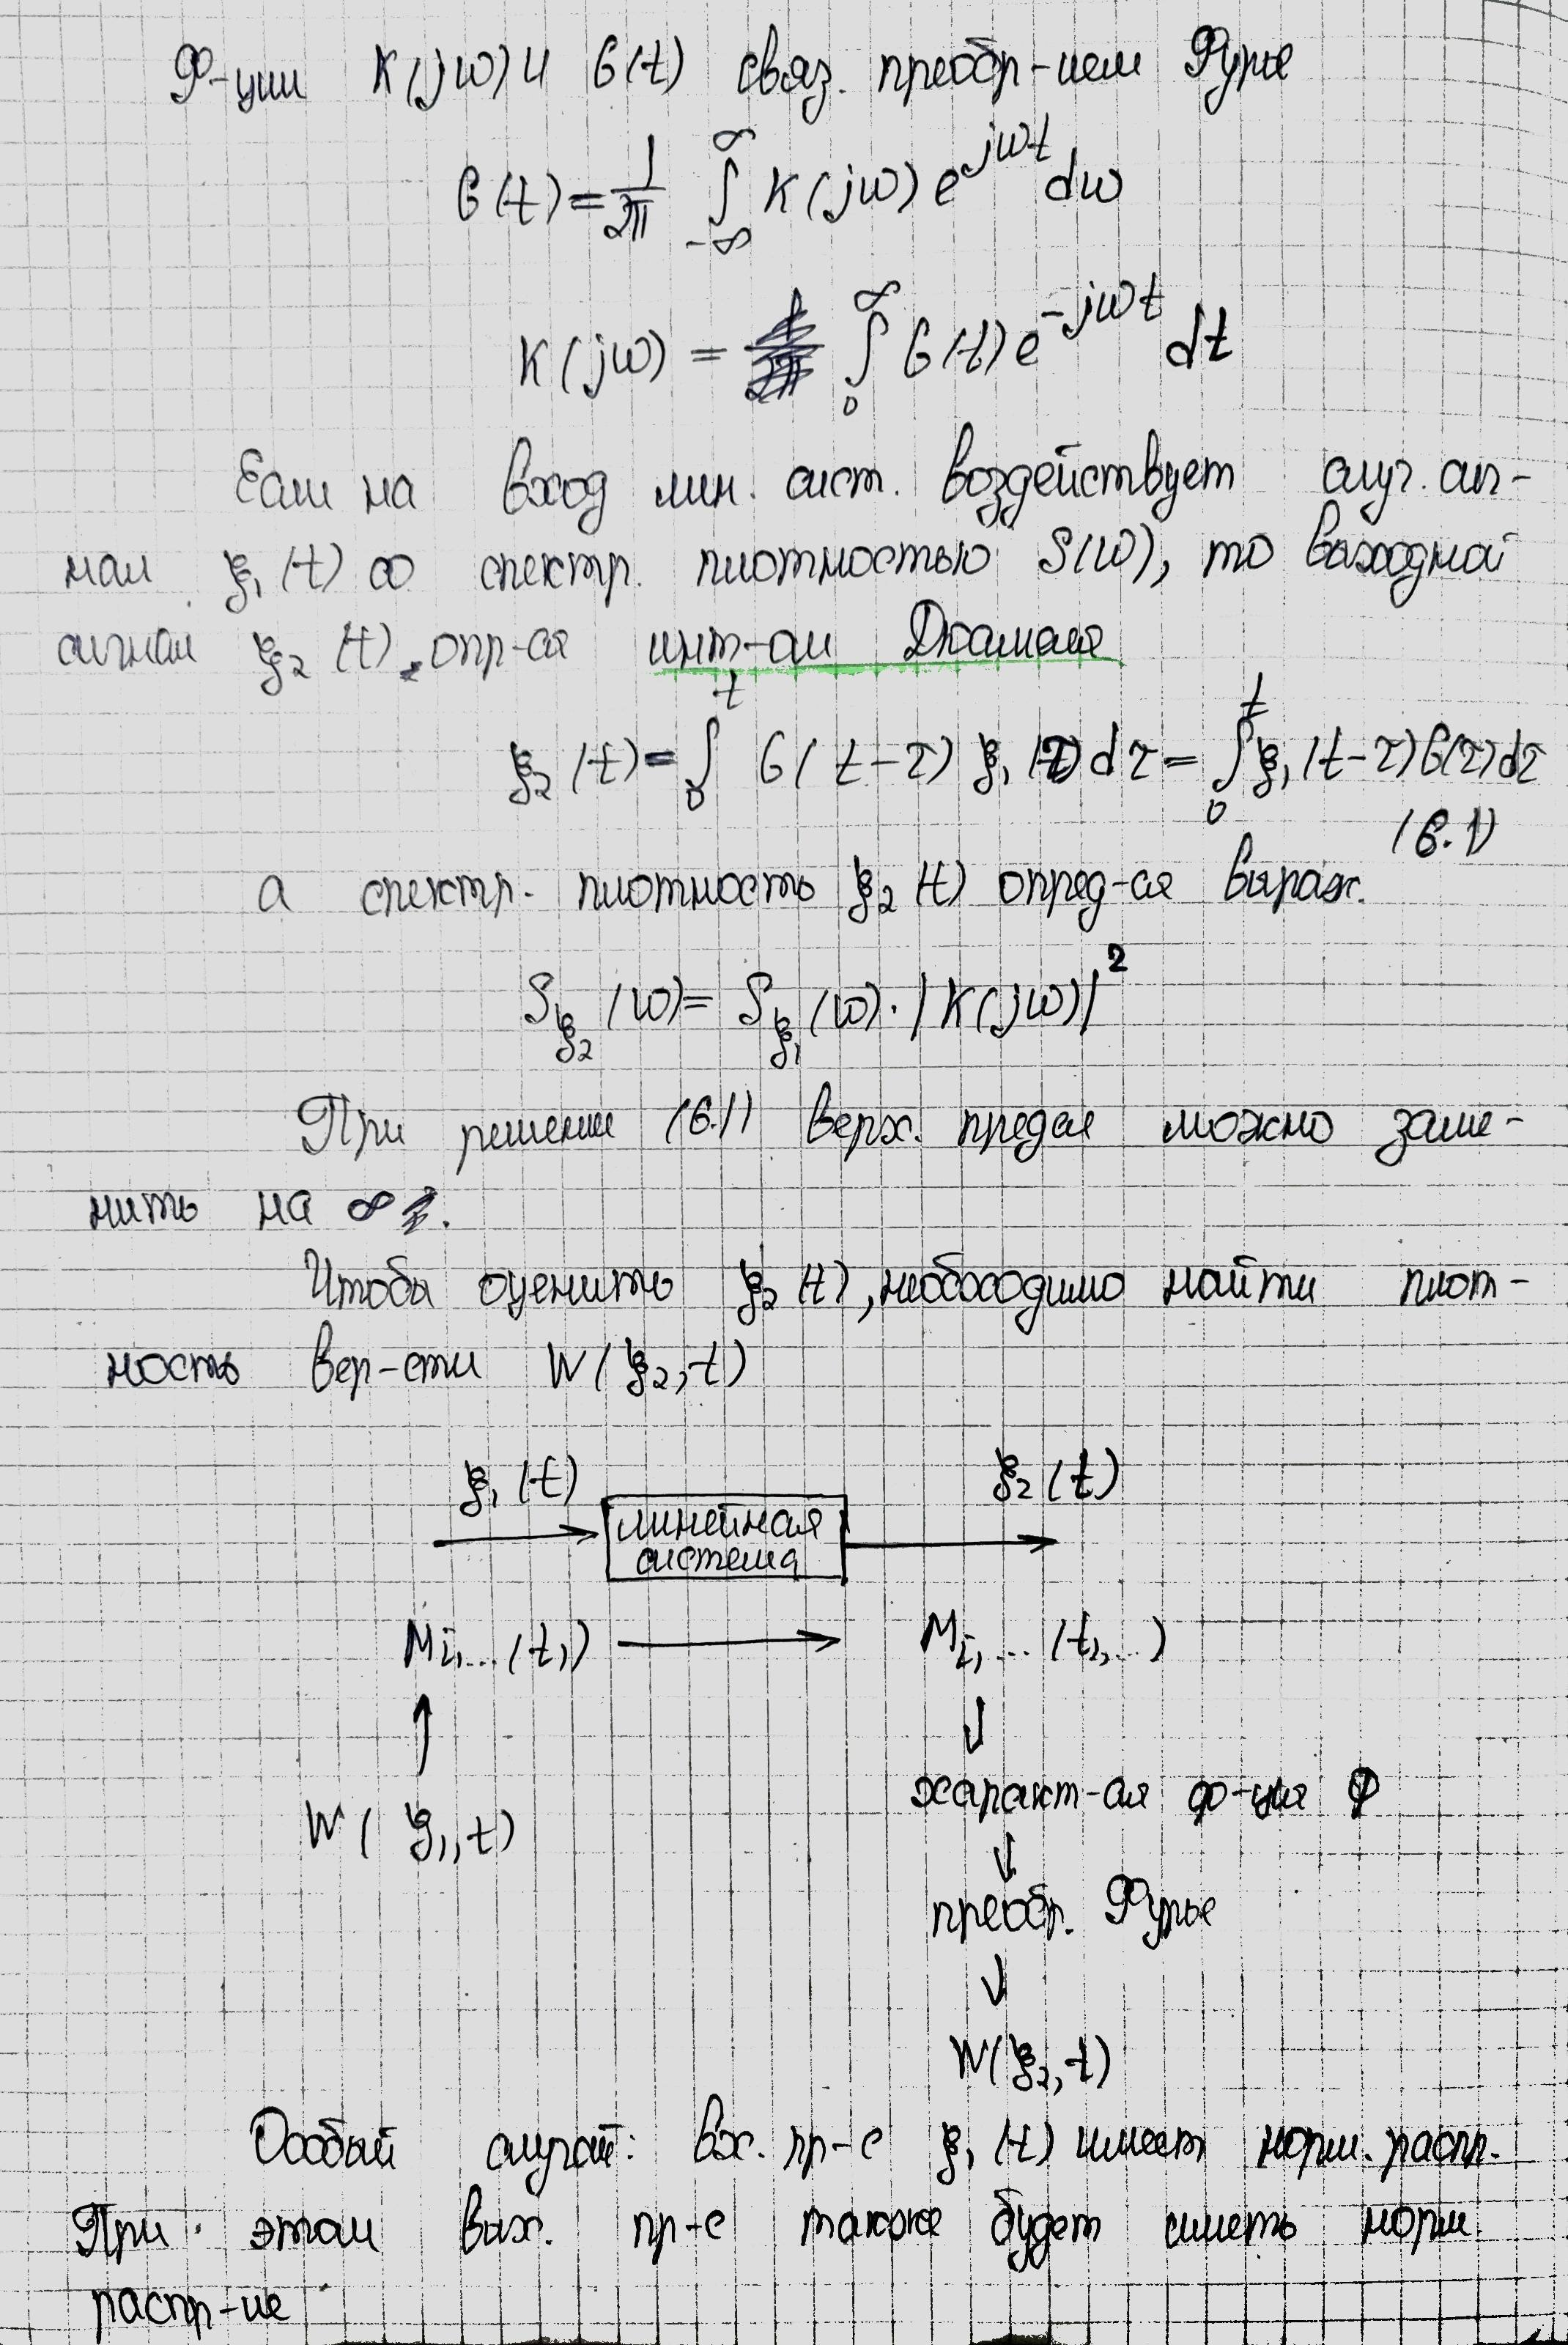 Ф-ции K(jω) и G(t) связ. преобр-ием Фурье
G(t) = 1/2π ∫_{-∞}^{∞} K(jω) e^{jωt} dω
K(jω) = ∫_0^∞ G(t) e^{-jωt} dt
Если на вход лин. сист. воздействует случ. сиг-
нал ξ₁(t) со спектр. плотностью S(ω), то выходной
сигнал ξ₂(t) опр-ся инт-ом Дюамеля
ξ₂(t) = ∫_0^t G(t-τ) ξ₁(τ) dτ = ∫_0^t ξ₁(t-τ) G(τ) dτ
(6.1)
а спектр. плотность ξ₂(t) опред-ся выраж.
S_{ξ₂}(ω) = S_{ξ₁}(ω) · |K(jω)|²
При решении (6.1) верх. предел можно заме-
нить на ∞.
Чтобы оценить ξ₂(t), необходимо найти плот-
ность вер-сти W(ξ₂, t)
ξ₁(t) ξ₂(t)
линейная
система
M_{i,...}(t,) → M_{i,...}(t₁,...)
↑ ↓
характ-ая ф-ция Φ
W(ξ₁, t) ↓
преобр. Фурье
↓
W(ξ₂, t)
Особый случай: вх. пр-с ξ₁(t) имеет норм. распр.
При этом вых. пр-с также будет иметь норм.
распр-ие